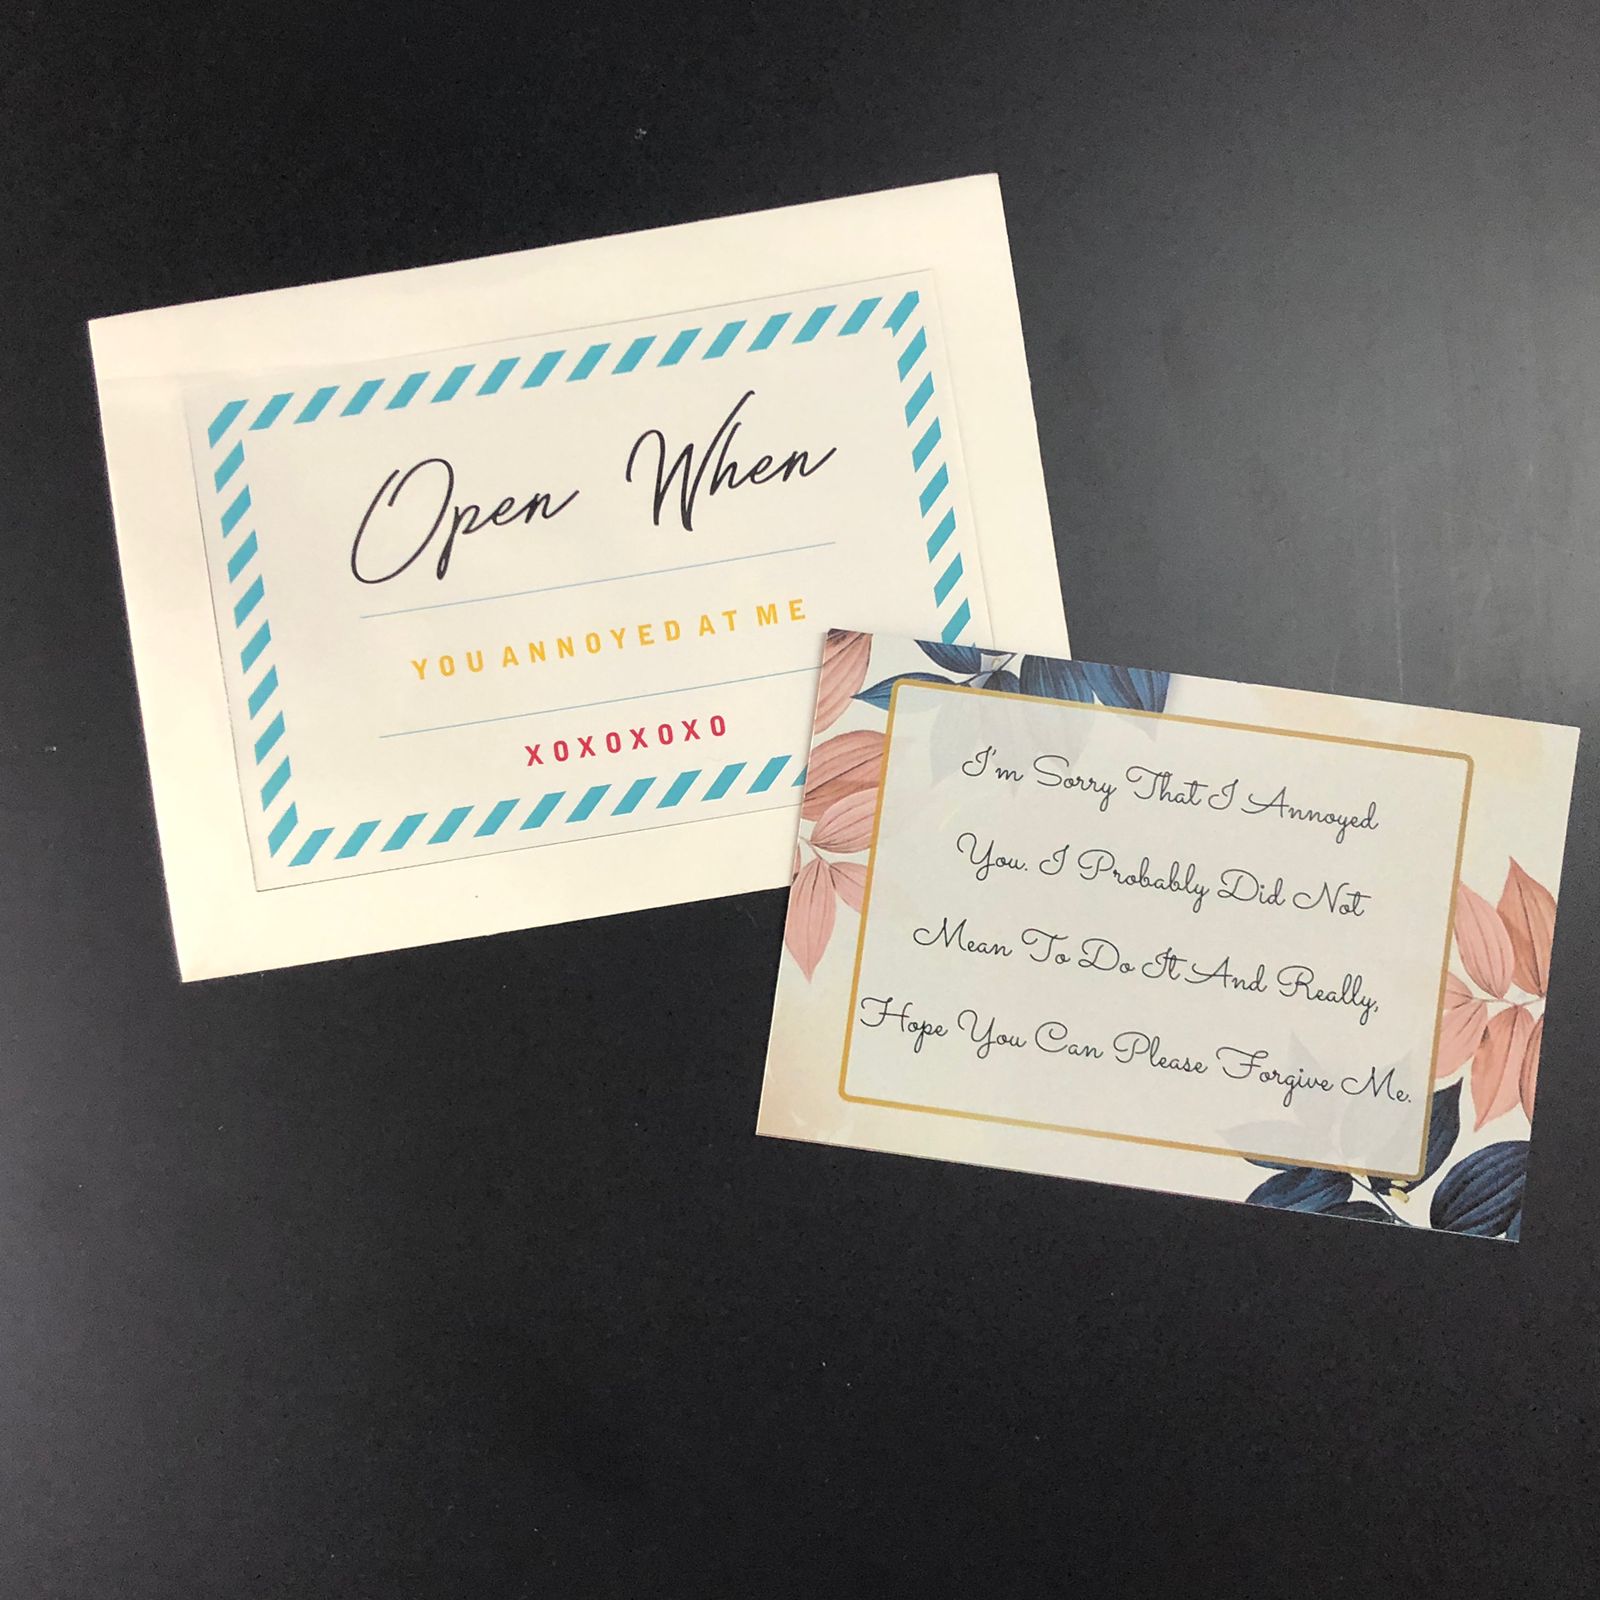 Open When
YOU ANNOYED AT ME
XOXOXOXO
I'm Sorry That I Annoyed
You. I Probably Did Not
Mean To Do It And Really,
Hope You Can Please Forgive Me.